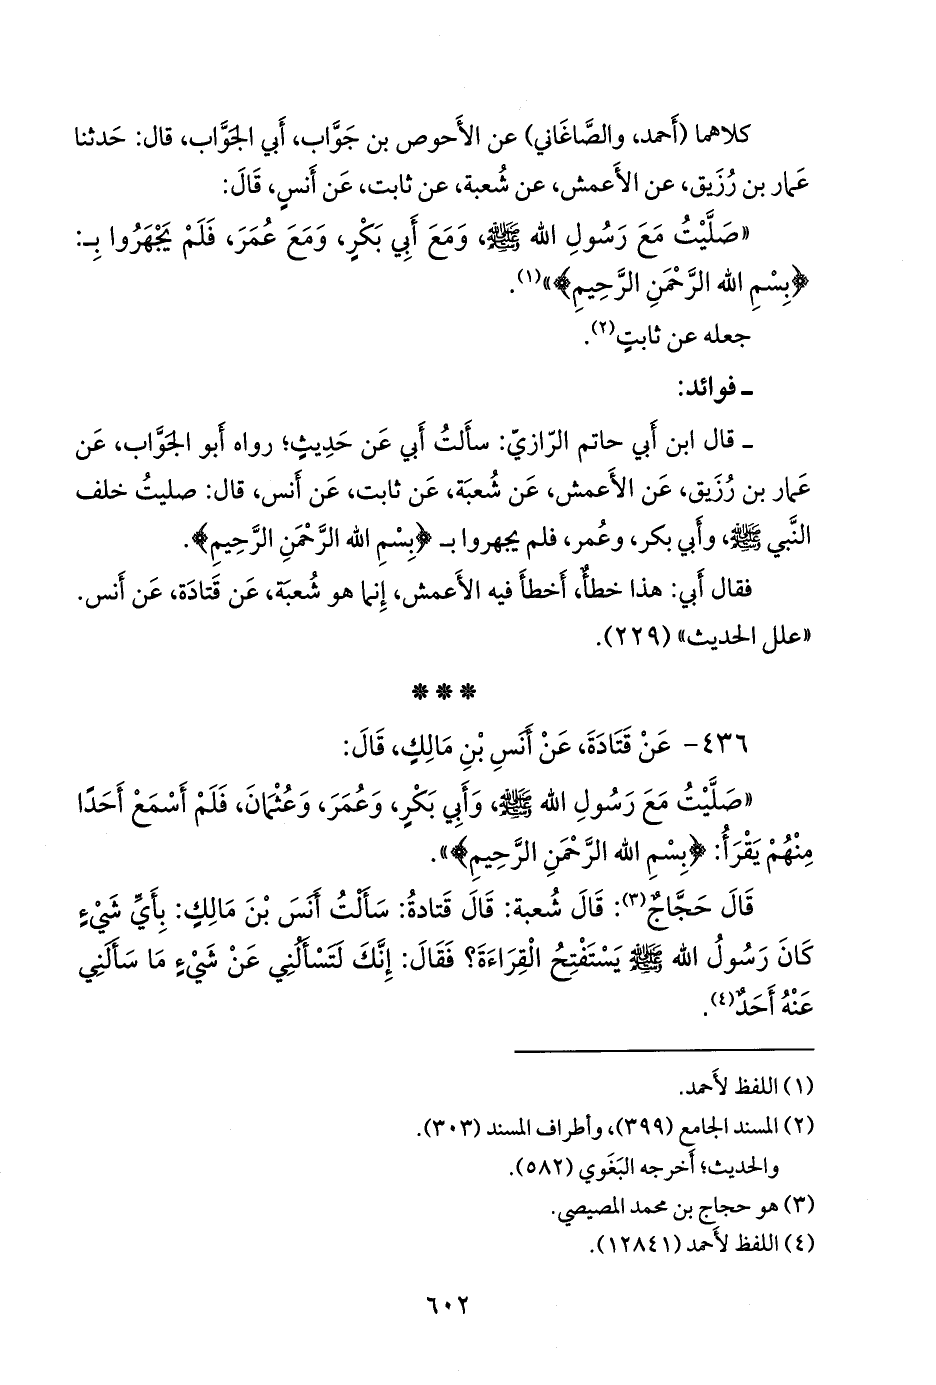 كلاهما (أَحمد، والصَّاغَاني) عن الأَحوص بن جَوَّاب، أَبي الجَوَّاب، قال: حَدثنا
عَمار بن رُزَيق، عن الأَعمش، عن شُعبة، عن ثابت، عَن أَنسٍ، قَالَ:
«صَلَّيْتُ مَعَ رَسُولِ الله ﷺ، وَمَعَ أَبِي بَكْرٍ، وَمَعَ عُمَرَ، فَلَمْ يَجْهَرُوا بِـ:
﴿بِسْمِ الله الرَّحْمَنِ الرَّحِيمِ﴾»(١).
جعله عن ثابتٍ(٢).
ـ فوائد:
ـ قال ابن أَبي حاتم الرّازيّ: سأَلتُ أَبي عَن حَدِيثٍ؛ رواه أَبو الجَوَّاب، عَن
عَمار بن رُزَيق، عَن الأَعمش، عَن شُعبَة، عَن ثابت، عَن أَنس، قال: صليتُ خلف
النَّبي ﷺ، وأَبي بكر، وعُمر، فلم يجهروا بـ ﴿بِسْمِ الله الرَّحْمَنِ الرَّحِيمِ﴾.
فقال أَبي: هذا خطأٌ، أَخطأَ فيه الأَعمش، إِنما هو شُعبَة، عَن قَتادَة، عَن أَنس.
«علل الحديث» (٢٢٩).
***
٤٣٦- عَنْ قَتَادَةَ، عَنْ أَنَسِ بْنِ مَالِكٍ، قَالَ:
«صَلَّيْتُ مَعَ رَسُولِ الله ﷺ، وَأَبِي بَكْرٍ، وَعُمَرَ، وَعُثْمَانَ، فَلَمْ أَسْمَعْ أَحَدًا
مِنْهُمْ يَقْرَأُ: ﴿بِسْمِ الله الرَّحْمَنِ الرَّحِيمِ﴾».
قَالَ حَجَّاجٌ(٣): قَالَ شُعبة: قَالَ قَتادةُ: سَأَلْتُ أَنَسَ بْنَ مَالِكٍ: بِأَيِّ شَيْءٍ
كَانَ رَسُولُ الله ﷺ يَسْتَفْتِحُ الْقِرَاءَةَ؟ فَقَالَ: إِنَّكَ لَتَسْأَلُنِي عَنْ شَيْءٍ مَا سَأَلَنِي
عَنْهُ أَحَدٌ(٤).
(١) اللفظ لأَحمد.
(٢) المسند الجامع (٣٩٩)، وأطراف المسند (٣٠٣).
والحديث؛ أَخرجه البَغَوي (٥٨٢).
(٣) هو حجاج بن محمد المصيصي.
(٤) اللفظ لأَحمد (١٢٨٤١).
٦٠٢